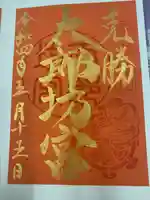 勝
太郎坊宮
令和四年五月十五日